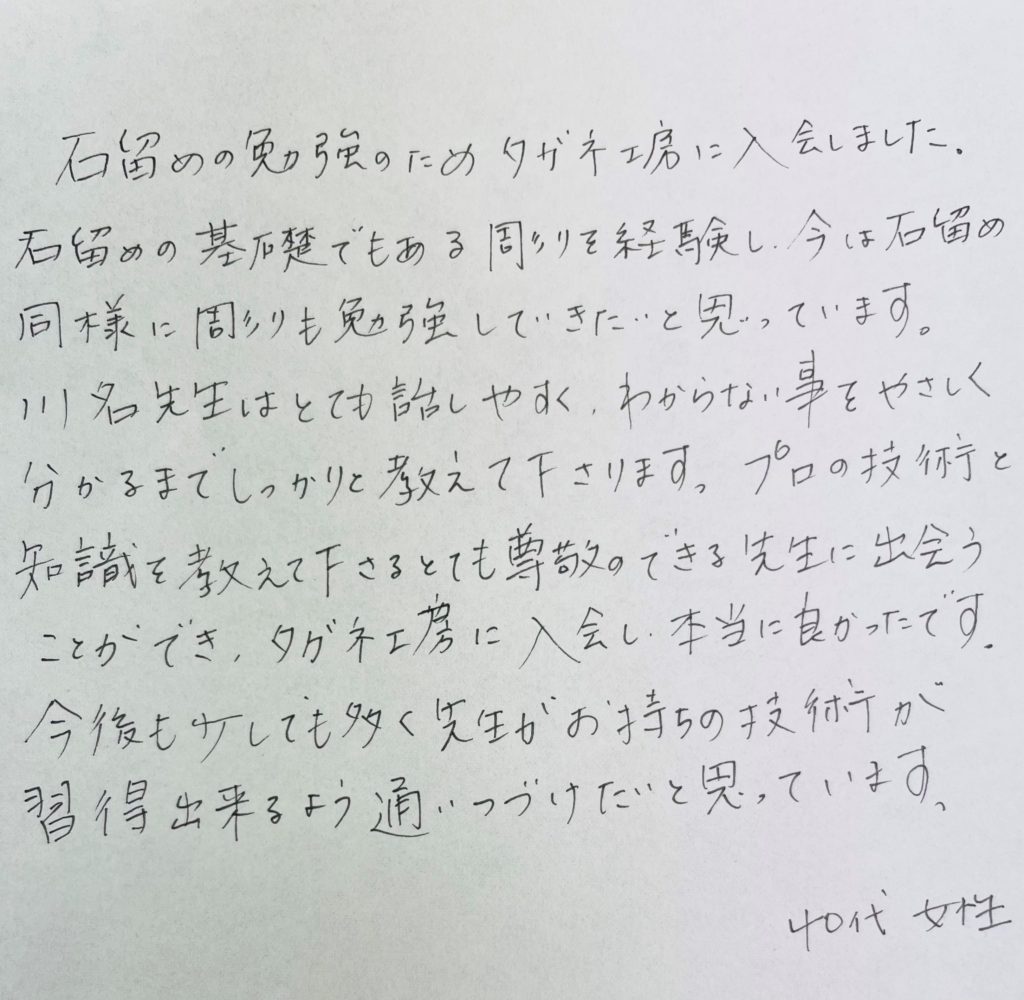 石留めの勉強のためタガネ工房に入会しました.
石留めの基礎でもある彫りを経験し、今は石留め
同様に彫りも勉強していきたいと思っています。
川名先生はとても話しやすく、わからない事をやさしく
分かるまでしっかりと教えて下さります。プロの技術と
知識を教えて下さるとても尊敬のできる先生に出会う
ことができ、タガネ工房に入会し、本当に良かったです.
今後も少しでも多く先生がお持ちの技術が
習得出来るよう通いつづけたいと思っています、
40代 女性